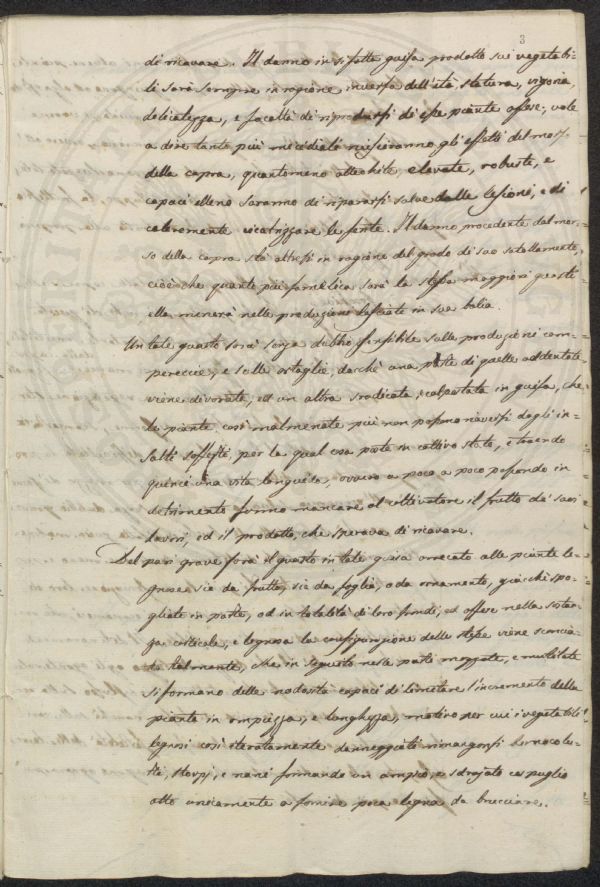 3
di ricavare. Il danno in sifatta guisa prodotto sui vegetabi-
li sarà sempre in ragione inversa dell'età, statura, vigoria,
delicatezza, e facoltà di riprodursi di esse piante offese, vale
a dire tanto più micidiali riusciranno gli effetti del morso
della capra, quantomeno alte, elevate, robuste, e
capaci elleno saranno di ripararsi salve dalle lesioni, e di
celeremente cicatrizzare le ferite. Il danno procedente dal mor-
so della capra sta altresì in ragione del grado di suo satollamento,
cioè che quanto più famelica sarà la stessa maggiori guasti
ella menerà nelle produzioni lasciate in sua balia.
Un tale guasto sarà senza dubbio sensibile sulle produzioni cam-
pereccie, e sulle ortaglie, dacchè una parte di quelle addentate
viene divorata, ed un altra sradicata, calpestata in guisa, che
le piante così malmenate più non possono riaversi dagli in-
sulti sofferti, per la qual cosa poste in cattivo stato, e traendo
quinci una vita languida, ovvero a poco a poco passando in
detrimento fanno mancare al coltivatore il frutto de' suoi
lavori, ed il prodotto, che sperava di ricavare.
Del pari grave sarà il guasto in tale guisa arrecato alle piante le-
gnose sie da frutto, sie da foglia, o da ornamento, giacchè spo-
gliate in parte, od in totalità di loro frondi, ed offese nella sostan-
za corticale, e legnosa la configurazione delle stesse viene sconcia-
ta talmente, che in seguito nelle parti mozzate, e mutilate
si formano delle nodosità capaci di limitare l'incremento della
piante in ampiezza, e lunghezza, motivo per cui i vegetabili
legnosi così iteratamente danneggiati rimangonsi bernocolu-
ti, storpi, e nani formando un ampio, e sdrajato cespuglio
atto unicamente a fornire poca legna da bruciare.